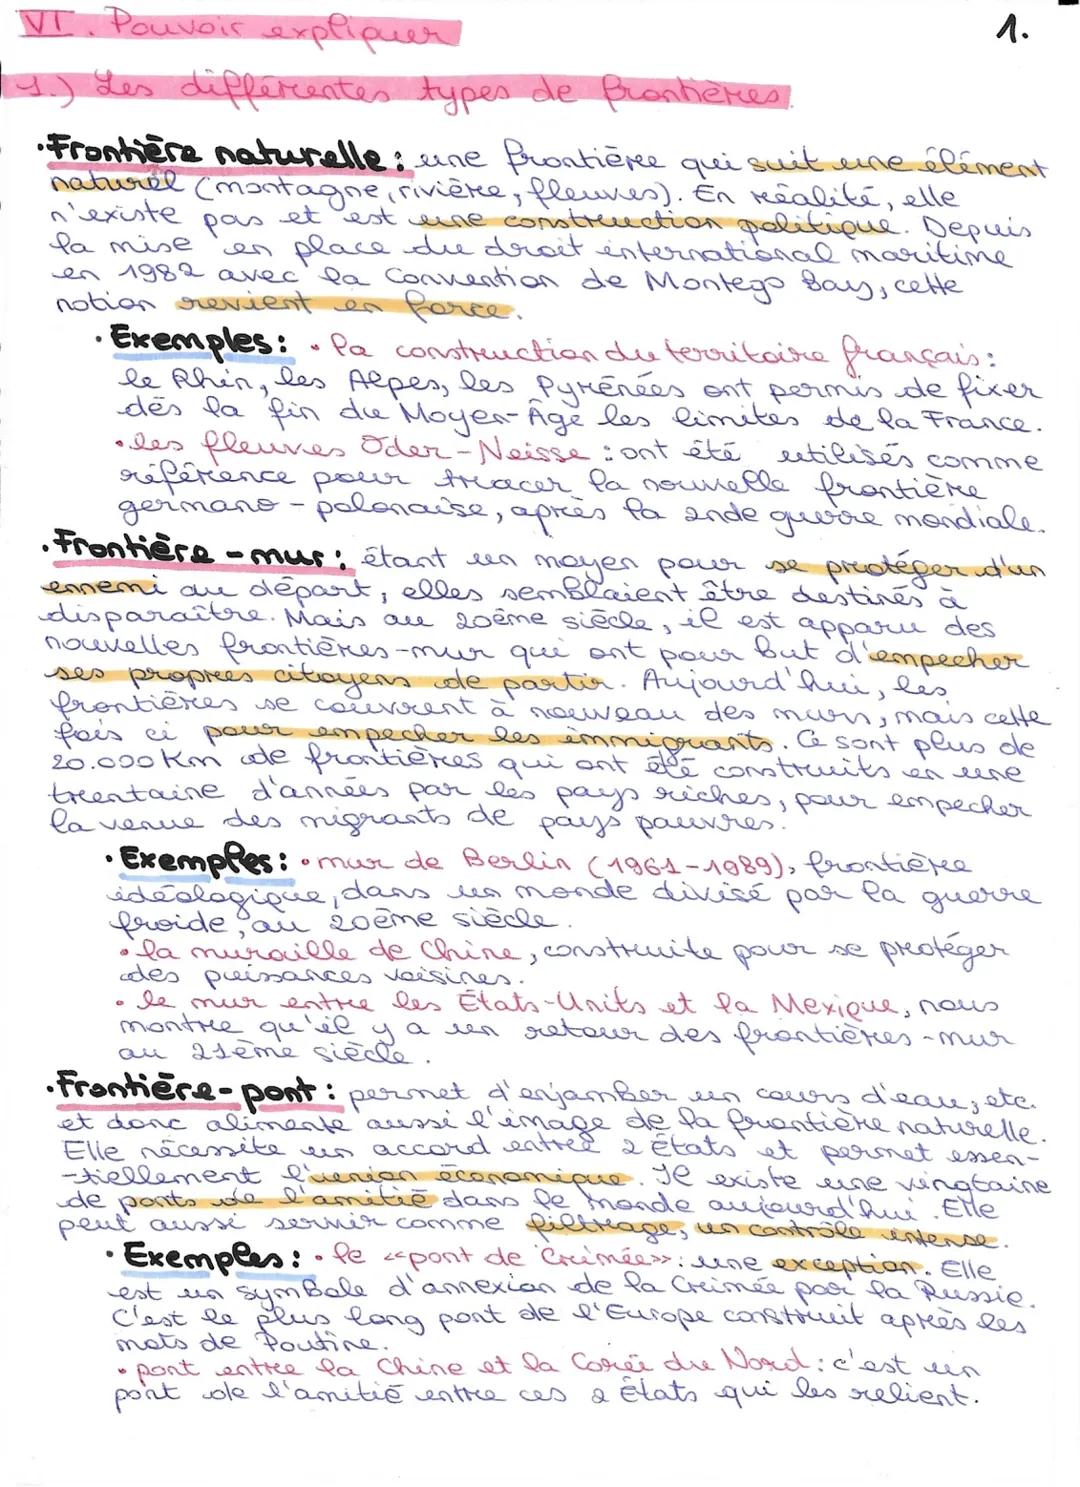 VI. Pouvoir expliquer
1.
1.) Les différentes types de frontières
·Frontière naturelle: une frontière qui suit une élément
naturel (montagne, rivière, fleuves). En réalité, elle
n'existe pas et est une construction politique. Depuis
la mise en place du droit international maritime
en 1982 avec la Convention de Montego Bay, cette
notion revient en force.
· Exemples: • la construction du territoire français:
le Rhin, les Alpes, les Pyrénées ont permis de fixer
dès la fin du Moyen-Âge les limites de la France.
• les fleuves Oder-Neisse : ont été utilisés comme
référence pour tracer la nouvelle frontière
germano-polonaise, après la 2nde guerre mondiale.
·Frontière-mur: étant un moyen pour se protéger d'un
ennemi au départ, elles semblaient être destinés à
disparaître. Mais au 20ème siècle, il est apparu des
nouvelles frontières-mur qui ont pour but d'empecher
ses propres citoyens de partir. Aujourd'hui, les
frontières se couvrent à nouveau des murs, mais cette
fois ci pour empecher les immigrants. Ce sont plus de
20.000 Km de frontières qui ont été construits en une
trentaine d'années par les pays riches, pour empecher
la venue des migrants de pays pauvres.
· Exemples: • mur de Berlin (1961-1989), frontière
idéologique, dans un monde divisé par la guerre
froide, au 20ème siècle.
• la muraille de Chine, construite pour se protéger
des puissances voisines.
• le mur entre les États-Unis et la Mexique, nous
montre qu'il y a un retour des frontières-mur
au 21ème siècle.
·Frontière-pont: permet d'enjamber un cours d'eau, etc.
et donc alimente aussi l'image de la frontière naturelle.
Elle nécessite un accord entre 2 États et permet essen-
-tiellement l'union économique. Il existe une vingtaine
de ponts de l'amitié dans le monde aujourd'hui. Elle
peut aussi servir comme filtrage, un contrôle intense.
· Exemples: • le «pont de Crimée»: une exception. Elle
est un symbole d'annexion de la Crimée par la Russie.
C'est le plus long pont de l'Europe construit après les
mots de Poutine.
• pont entre la Chine et la Corée du Nord: c'est un
pont de l'amitié entre ces 2 États qui les relient.